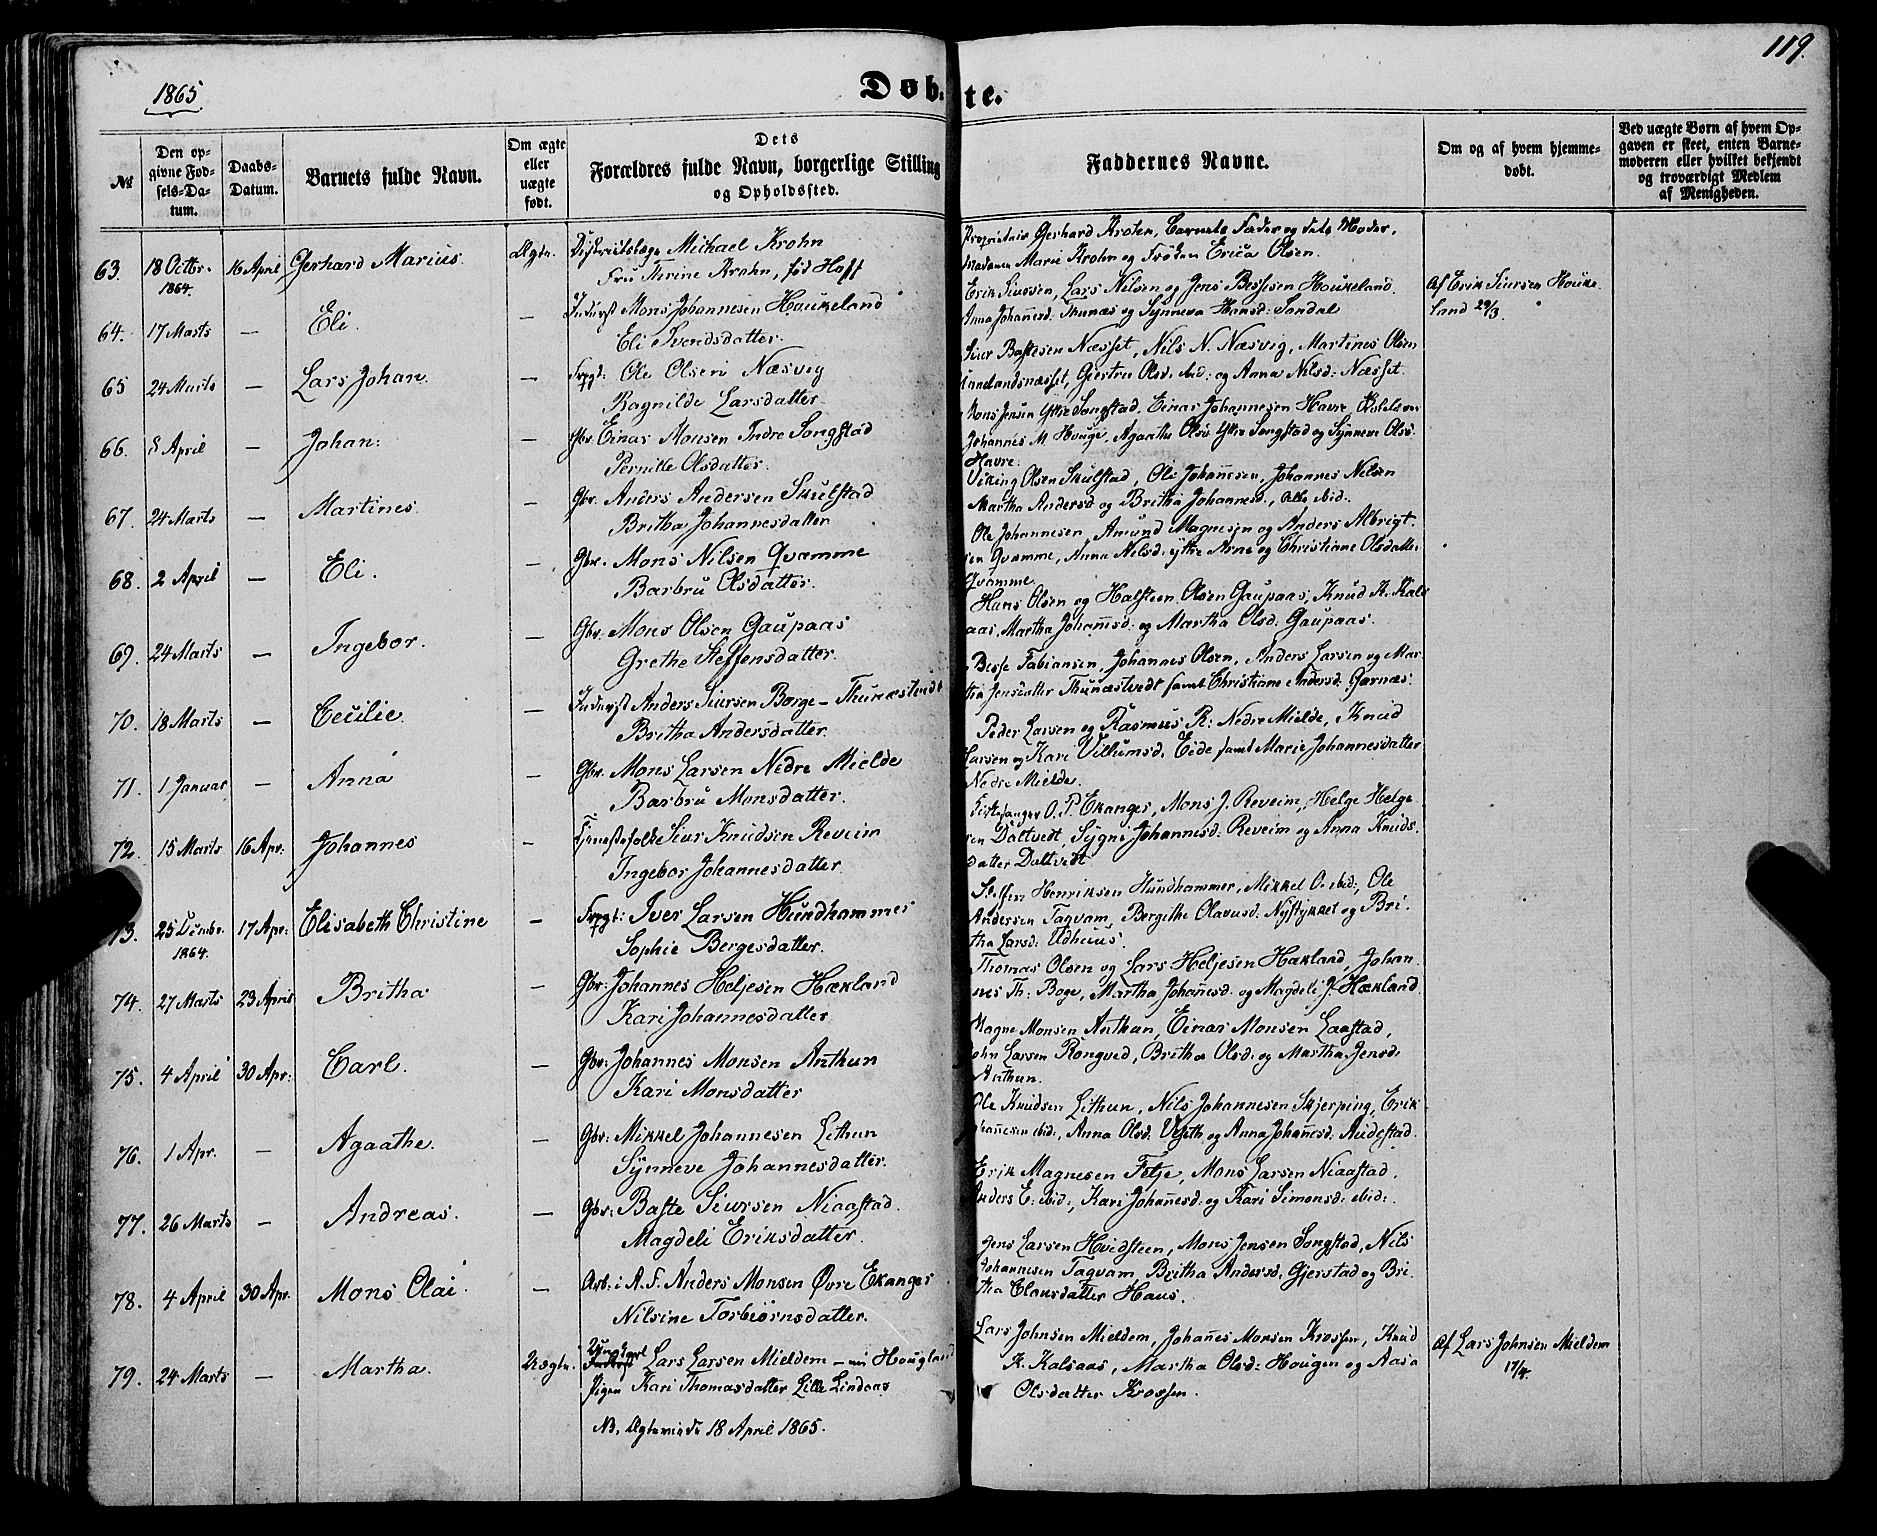 1865
119.
Døb-te.
№
Den op-
givne Fød-
sels-Da-
tum.
Daabs-
Datum.
Barnets fulde Navn.
Om ægte
eller
uægte
født.
Dets
Forældres fulde Navn, borgerlige Stilling
og Opholdssted.
Faddernes Navne.
Om og af hvem hjemme-
døbt.
Ved uægte Børn af hvem Op-
gaven er skeet, enten Barne-
moderen eller hvilket bekjendt
og troværdigt Medlem
af Menigheden.
63. 18 Octbr. 16 April Gerhard Marius. Ægte. Districtslæge Michael Krohn
1864.
Fru Thrine Krohn, fød Hoff
Proprietair Gerhard Krohn, Barnets Fader og dets Moder,
Madame Marie Krohn og Frøken Erica Olsen.
64. 17 Marts — Eli. — Inderst Mons Johannesen Houkeland
Eli Svendsdatter.
Erik Siursen, Lars Nilsen og Jens Bessesen Houkeland
Anna Johannesd: Thunæs og Synneva Hansd: Sandal
Af Erik Siursen Houke
land 29/3.
65 24 Marts — Lars Johan. — Ole Olsen Næsvig
Ragnilde Larsdatter.
Siur Bastesen Næsset, Nils N. Næsvig, Martines Olsen
Giertru Olsd. ibid: og Anna Nilsd: Næsset.
66. 8 April — Johan. — Gbr. Einar Monsen Indre Songstad
Pernille Olsdatter.
Mons Jensen Yttre Songstad, Einar Johannesen Havre
Johannes M Houge, Agaathe Olsd Yttre Songstad og Synneve Olsd.
Havre.
67. 24 Marts — Martines. — Gbr. Anders Andersen Skulstad
Britha Johannesdatter
Viking Olsen Skulstad, Ole Johannesen, Johannes Nilsen
Martha Andersd og Britha Johannesd., Alle ibid.
68. 2 April — Eli. — Gbr. Mons Nilsen Qvamme
Barbru Olsdatter.
Ole Johannesen, Amund Magnesen og Anders Albrigt-
sen Qvamme, Anna Nilsd: yttre Arne og Christiane Olsdatter
Qvamme.
69. 24 Marts — Ingebor. — Gbr. Mons Olsen Gaupaas
Grethe Steffensdatter.
Hans Olsen og Halsteen Olsen Gaupaas, Knud K. Kals
aas, Martha Johannsd: og Martha Olsd. Gaupaas.
70. 18 Marts — Cecilie. — Inderst Anders Siursen Borge — Thunæstvedt
Britha Andersdatter.
Besse Fabiansen, Johannes Olsen, Anders Larsen og Mar-
tha Jensdatter Thunæstvedt samt Christiane Andersd: Garnæs.
71. 1 Januar — Anna — Gbr. Mons Larsen Nedre Mielde
Barbru Monsdatter.
Peder Larsen og Rasmus R: Nedre Mielde, Knud
Larsen og Kari Villumsd: Eide samt Marie Johannesdatter
Nedre Mielde.
72. 15 Marts 16 Apr. Johannes — Tjenestefolk Siur Knudsen Reveim
Ingebor Johannesdatter.
Kirkesanger O. P. Ekanger, Mons J. Reveim, Helge Helge-
sen Daltvedt, Sygni Johannesd: Reveim og Anna Knuds-
datter Daltvedt
73. 25 Decmbr. 17 Apr: Elisabeth Christine — Iver Larsen Hundhammer
1864.
Sophie Bergesdatter.
Steffen Henriksen Hundhammer, Mikkel O. ibid:, Ole
Andersen Tagvam, Bergithe Olavusd. Nystykket og Bri-
tha Larsd: Udhuus.
74. 27 Marts 23 April Britha — Gbr: Johannes Heljesen Hækland
Kari Johannesdatter
Thomas Olsen og Lars Heljesen Hækland, Johan-
nes Th: Boge, Martha Johanesd. og Magdeli J. Hækland
75. 4 April 30 Apr: Carl. — Gbr: Johannes Monsen Anthun
Kari Monsdatter
Magne Monsen Anthun, Einar Monsen Laastad,
John Larsen Rongved, Britha Olsd: og Martha Jensd:
Anthun.
76. 1 Apr. — Agaathe. — Gbr: Mikkel Johannesen Lithun
Synneve Johannesdatter.
Ole Knudsen Lithun, Nils Johannesen Skjerping, Erik
Johannesen ibid:, Anna Olsd: og Anna Johanesd: Audestad.
77. 26 Marts — Andreas. — Gbr: Baste Siursen Niaastad.
Magdeli Eriksdatter.
Erik Magnesen Fotje, Mons Larsen Niaastad.
Anders E: ibid:, Kari Johanesd: og Kari Simonsd: ibid:
78. 4 April 30 Apr. Mons Olai. — Arb. i A. F. Anders Monsen Øvre Ekanger
Nilsine Torbiørnsdatter.
Jens Larsen Hvidsteen, Mons Jensen Songstad, Nils
Johannesen Tagvam, Britha Andersd. Gjerstad og Bri-
tha Clausdatter Haus.
79. 24 Marts — Martha. Uægte. Ungkarl Lars Larsen Mieldem — nu Hougland
Pigen Kari Thomasdatter Lille Lindaas
NB. Ægteviede 18 April 1865.
Lars Johnsen Mieldem, Johanes Monsen Krossen, Knud
K. Kalsaas, Martha Olsd: Hougen og Aasa
Olsdatter Krossen.
Af Lars Johnsen Mieldem
17/4.